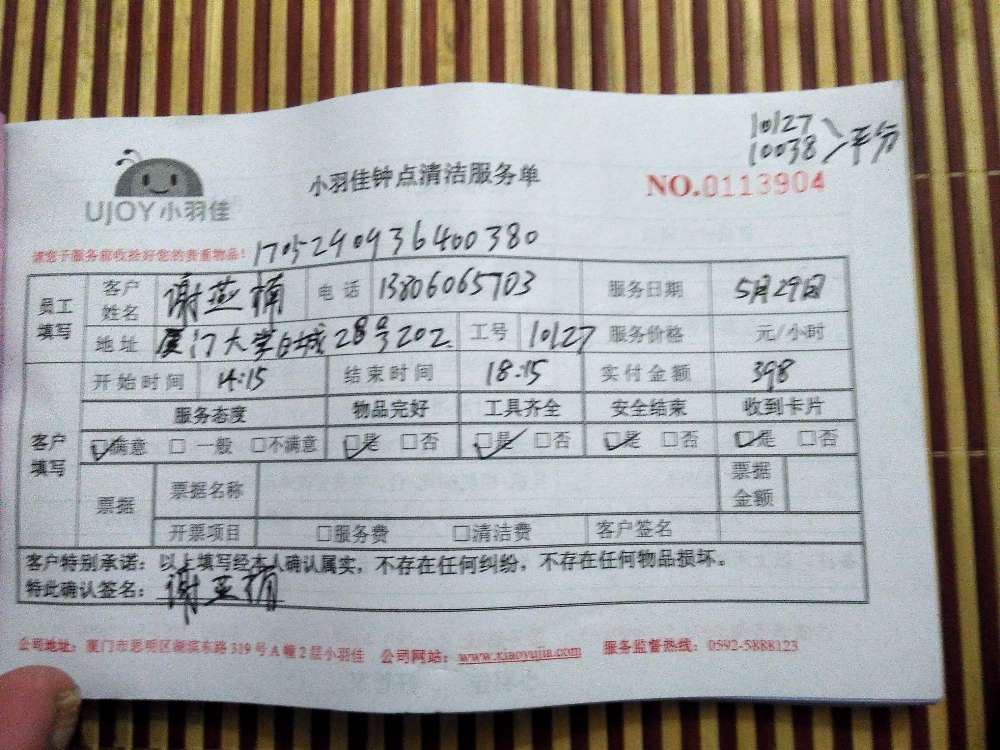 10127
10038 平分
UJOY小羽佳
小羽佳钟点清洁服务单
NO.0113904
请您于服务前收拾好您的贵重物品! 1705290936400380
员工填写 客户姓名 谢燕楠 电话 13806065703 服务日期 5月29日
地址 厦门大学白城28号202 工号 10127 服务价格 元/小时
客户填写 开始时间 14:15 结束时间 18:15 实付金额 398
服务态度 物品完好 工具齐全 安全结束 收到卡片
☑满意 □一般 □不满意 ☑是 □否 ☑是 □否 ☑是 □否 ☑是 □否
票据 票据名称 票据金额
开票项目 □服务费 □清洁费 客户签名
客户特别承诺：以上填写经本人确认属实，不存在任何纠纷，不存在任何物品损坏。
特此确认签名：谢燕楠
公司地址：厦门市思明区湖滨东路319号A幢2层小羽佳 公司网站：www.xiaoyujia.com 服务监督热线：0592-5888123